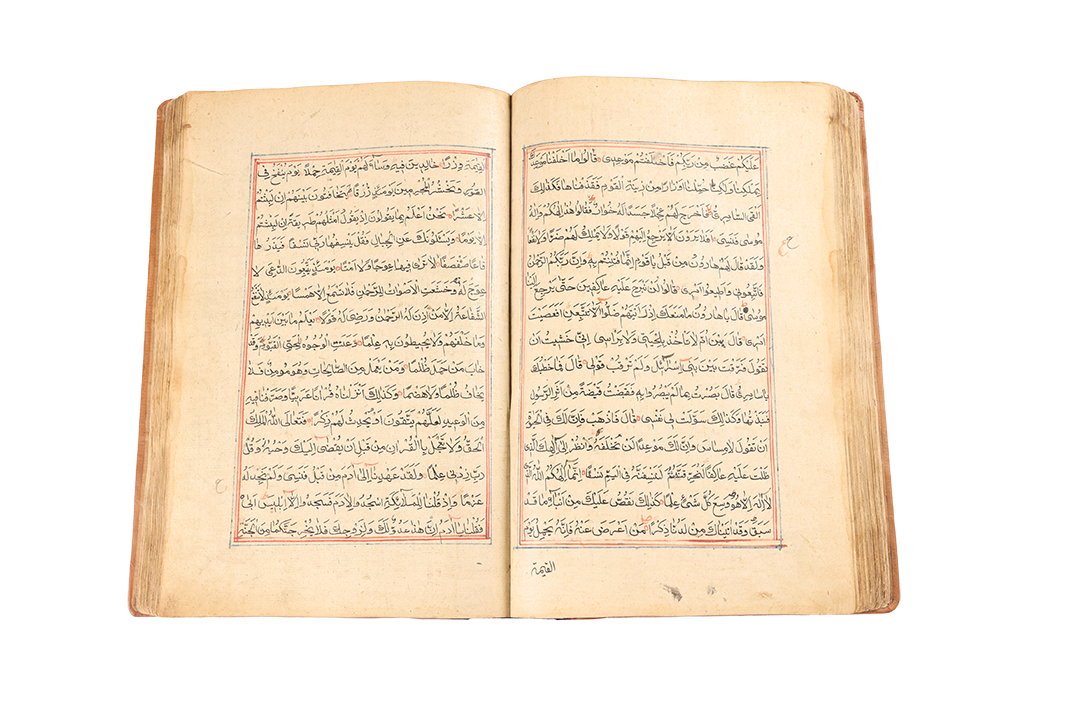 عليكم غضب من ربكم فاخلفتم موعدى قالوا ما اخلفنا موعدك
بملكنا ولكنا حملنا اوزارا من زينة القوم فقذفناها فكذلك
القى السامرى فاخرج لهم عجلا جسدا له خوار فقالوا هذا الهكم واله
موسى فنسى افلا يرون الا يرجع اليهم قولا ولا يملك لهم ضرا ولا نفعا
ولقد قال لهم هارون من قبل يا قوم انما فتنتم به وان ربكم الرحمن
فاتبعونى واطيعوا امرى قالوا لن نبرح عليه عاكفين حتى يرجع الينا
موسى قال يا هارون ما منعك اذ رايتهم ضلوا الا تتبعن افعصيت
امرى قال يبنؤم لا تاخذ بلحيتى ولا براسى انى خشيت ان
تقول فرقت بين بنى اسرائيل ولم ترقب قولى قال فما خطبك
يا سامرى قال بصرت بما لم يبصروا به فقبضت قبضة من اثر الرسول
فنبذتها وكذلك سولت لى نفسى قال فاذهب فان لك فى الحيوة
ان تقول لا مساس وان لك موعدا لن تخلفه وانظر الى الهك الذى
ظلت عليه عاكفا لنحرقنه ثم لننسفنه فى اليم نسفا انما الهكم الله الذى
لا اله الا هو وسع كل شئ علما كذلك نقص عليك من انباء ما قد
سبق وقد اتيناك من لدنا ذكرا من اعرض عنه فانه يحمل يوم
القيمة
القيمة وزرا خالدين فيه وساء لهم يوم القيمة حملا يوم ينفخ فى
الصور ونحشر المجرمين يومئذ زرقا يتخافتون بينهم ان لبثتم
الا عشرا نحن اعلم بما يقولون اذ يقول امثلهم طريقة ان لبثتم
الا يوما ويسئلونك عن الجبال فقل ينسفها ربى نسفا فيذرها
قاعا صفصفا لا ترى فيها عوجا ولا امتا يومئذ يتبعون الداعى لا
عوج له وخشعت الاصوات للرحمن فلا تسمع الا همسا يومئذ لا تنفع
الشفاعة الا من اذن له الرحمن ورضى له قولا يعلم ما بين ايديهم
وما خلفهم ولا يحيطون به علما وعنت الوجوه للحى القيوم وقد
خاب من حمل ظلما ومن يعمل من الصالحات وهو مؤمن فلا
يخاف ظلما ولا هضما وكذلك انزلناه قرانا عربيا وصرفنا فيه
من الوعيد لعلهم يتقون او يحدث لهم ذكرا فتعالى الله الملك
الحق ولا تعجل بالقران من قبل ان يقضى اليك وحيه وقل
رب زدنى علما ولقد عهدنا الى ادم من قبل فنسى ولم نجد له
عزما واذ قلنا للملائكة اسجدوا لادم فسجدوا الا ابليس ابى
فقلنا يا ادم ان هذا عدو لك ولزوجك فلا يخرجنكما من الجنة